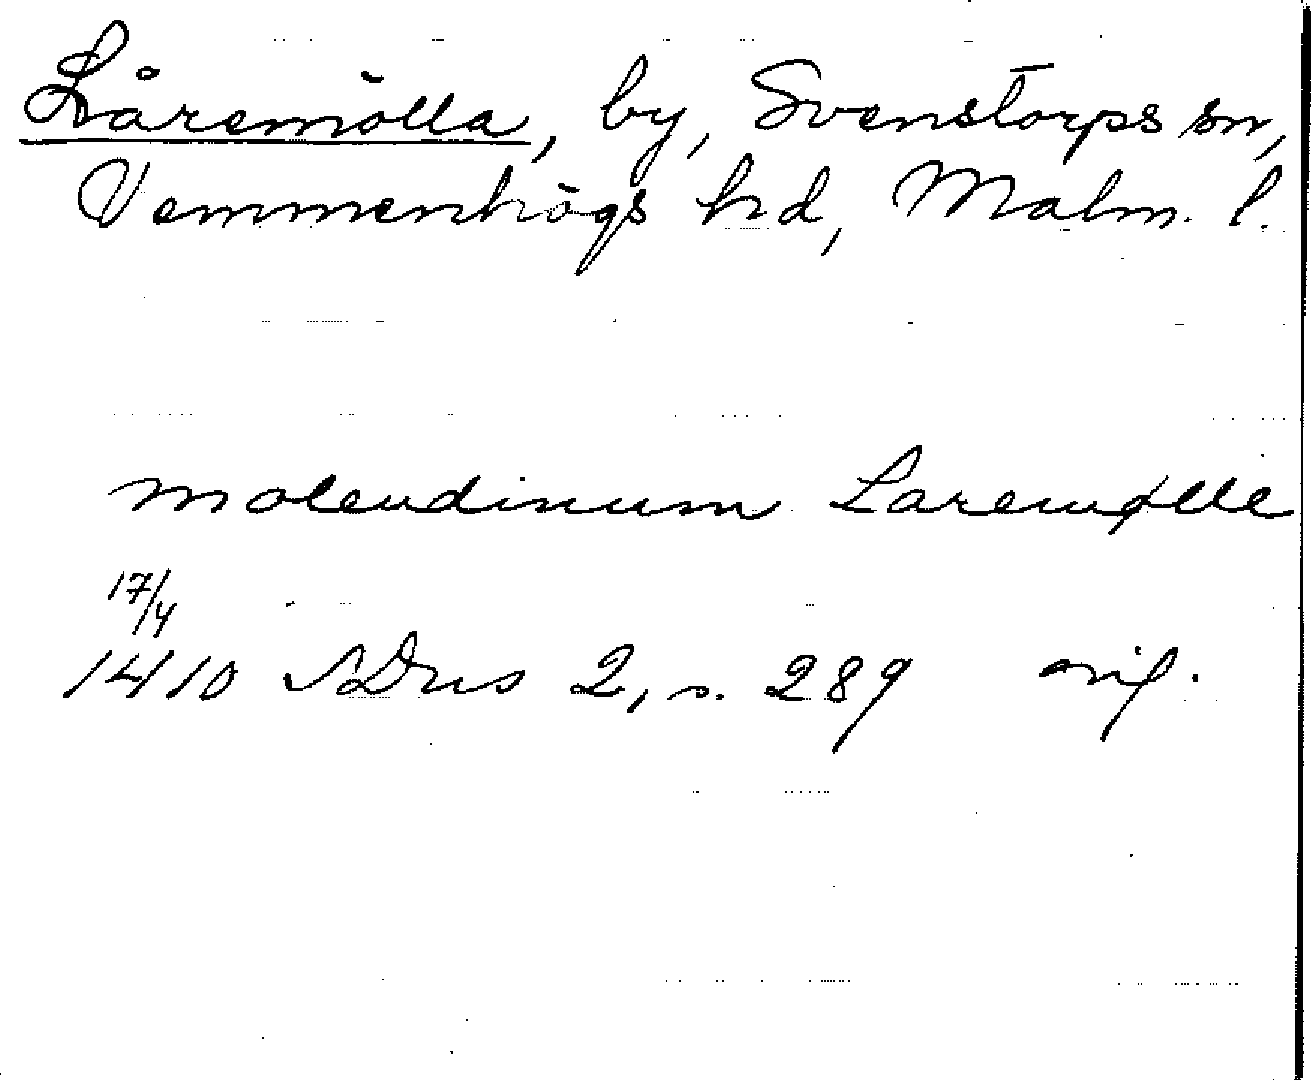 Låremölla, by, Svenstorps sn,
Vemmenhögs hd, Malm. l.
molendinum Laremølle
17/4
1410 SDns 2, s. 289 orig.